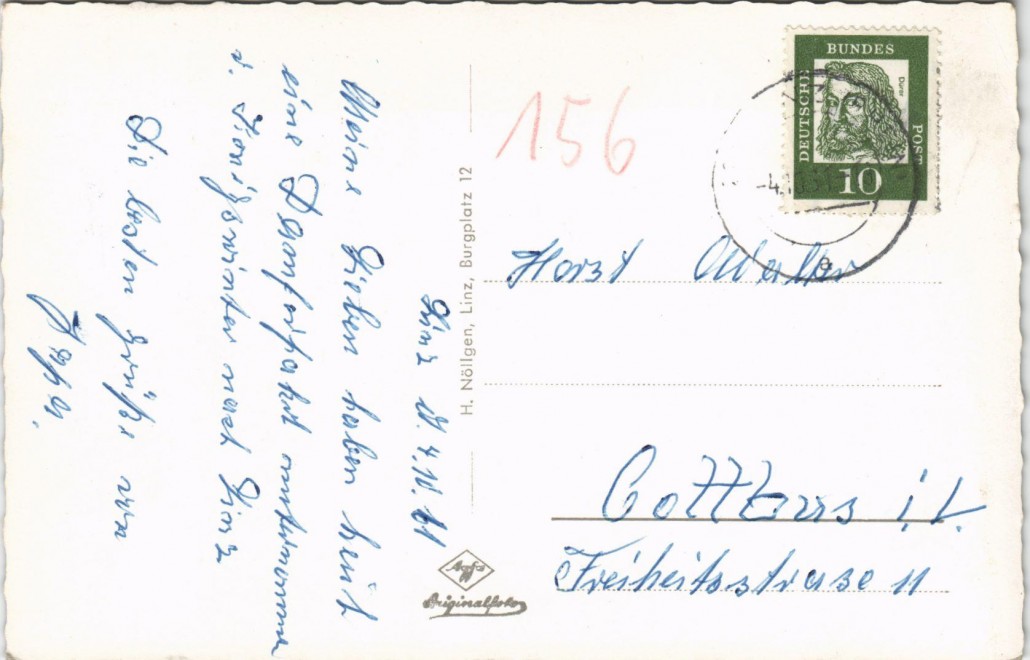 Linz d. 4.10.61
Meine Lieben haben heut
eine Dampferfahrt unternommen
v. Königswinter nach Linz
Die besten Grüße von
H. Nöllgen, Linz, Burgplatz 12
156
DEUTSCHE BUNDESPOST
Dürer
10
-4.10.61
a
Horst
Cottbus i. L.
Freiheitsstrase 11
Agfa
Originalfoto